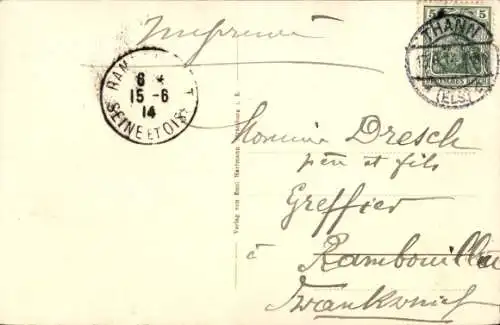 Imprimé
5 5
THANN
(ELS)
RAM T
8 *
15-6
14
SEINE ET OISE
Monsieur Dresch
père et fils
Greffier
à Rambouillet
Frankreich
Verlag von Emil Hartmann